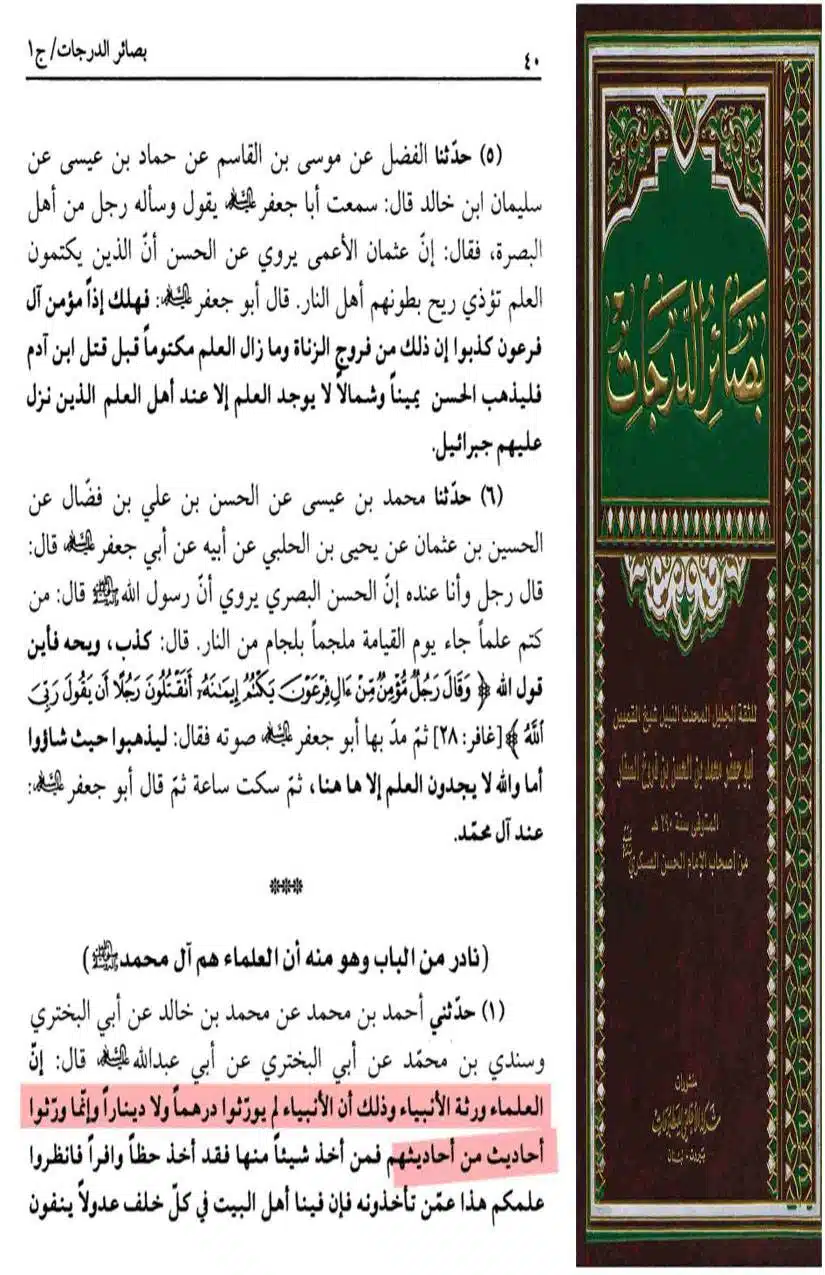 بصائر الدرجات/ ج١
٤٠
(٥) حدّثنا الفضل عن موسى بن القاسم عن حماد بن عيسى عن
سليمان ابن خالد قال: سمعت أبا جعفر عليه السلام يقول وسأله رجل من أهل
البصرة، فقال: إنّ عثمان الأعمى يروي عن الحسن أنّ الذين يكتمون
العلم تؤذي ريح بطونهم أهل النار. قال أبو جعفر عليه السلام: فهلك إذاً مؤمن آل
فرعون كذبوا إن ذلك من فروج الزناة وما زال العلم مكتوماً قبل قتل ابن آدم
فليذهب الحسن يميناً وشمالاً لا يوجد العلم إلا عند أهل العلم الذين نزل
عليهم جبرائيل.
(٦) حدّثنا محمد بن عيسى عن الحسن بن علي بن فضّال عن
الحسين بن عثمان عن يحيى بن الحلبي عن أبيه عن أبي جعفر عليه السلام قال:
قال رجل وأنا عنده إنّ الحسن البصري يروي أنّ رسول الله ﷺ قال: من
كتم علماً جاء يوم القيامة ملجماً بلجام من النار. قال: كذب، ويحه فأين
قول الله ﴿ وَقَالَ رَجُلٌ مُّؤْمِنٌ مِّنْ ءَالِ فِرْعَوْنَ يَكْتُمُ إِيمَٰنَهُۥٓ أَتَقْتُلُونَ رَجُلًا أَن يَقُولَ رَبِّيَ
ٱللَّهُ ﴾ [غافر: ٢٨] ثمّ مدّ بها أبو جعفر عليه السلام صوته فقال: ليذهبوا حيث شاؤوا
أما والله لا يجدون العلم إلا ها هنا، ثمّ سكت ساعة ثمّ قال أبو جعفر عليه السلام:
عند آل محمّد.
***
(نادر من الباب وهو منه أن العلماء هم آل محمد ﷺ)
(١) حدّثني أحمد بن محمد عن محمد بن خالد عن أبي البختري
وسندي بن محمّد عن أبي البختري عن أبي عبدالله عليه السلام قال: إنّ
العلماء ورثة الأنبياء وذلك أن الأنبياء لم يورّثوا درهماً ولا ديناراً وإنّما ورّثوا
أحاديث من أحاديثهم فمن أخذ شيئاً منها فقد أخذ حظاً وافراً فانظروا
علمكم هذا عمّن تأخذونه فإن فينا أهل البيت في كلّ خلف عدولاً ينفون
بصائر الدرجات
للثقة الجليل المحدث النبيل شيخ القميين
أبو جعفر محمد بن الحسن بن فروخ الصفار
المتوفى سنة ٢٩٠ هـ
من أصحاب الإمام الحسن العسكري
منشورات
بيروت - لبنان